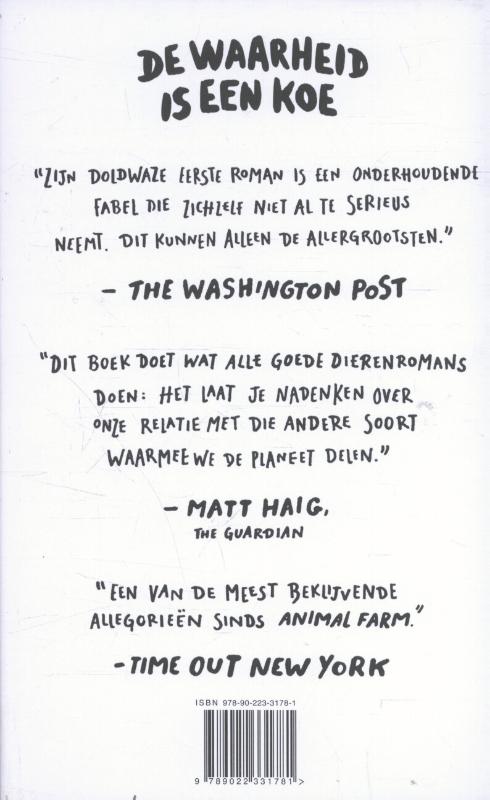 DE WAARHEID
IS EEN KOE
"ZIJN DOLDWAZE EERSTE ROMAN IS EEN ONDERHOUDENDE
FABEL DIE ZICHZELF NIET AL TE SERIEUS
NEEMT. DIT KUNNEN ALLEEN DE ALLERGROOTSTEN."
– THE WASHINGTON POST
"DIT BOEK DOET WAT ALLE GOEDE DIERENROMANS
DOEN: HET LAAT JE NADENKEN OVER
ONZE RELATIE MET DIE ANDERE SOORT
WAARMEE WE DE PLANEET DELEN."
– MATT HAIG,
THE GUARDIAN
"EEN VAN DE MEEST BEKLIJVENDE
ALLEGORIEËN SINDS ANIMAL FARM."
-TIME OUT NEW YORK
ISBN 978-90-223-3178-1
9 789022 331781 >